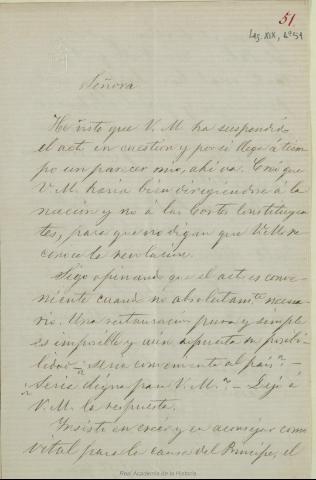 51
Leg. XIX, nº 51
Señora
He visto que V. M. ha suspendido
el acto en cuestion y por si llega á tiem
po un parecer mio, ahi va. Creo que
V. M. haria bien dirigiendose á la
nacion y no á las Cortes Constituyen
tes, para que no digan que V. M. re
conoce la revolucion.
Sigo opinando que el acto es conve
niente cuando no absolutamte. necesa
rio. Una restauracion pura y simple
es imposible y aun supuesta su posibi
lidad ¿seria conveniente al pais? -
¿Seria digna para V. M.? - Dejo á
V. M. la respuesta.
Insisto en creer y en aconsejar como
vital para la causa del Principe, el
Real Academia de la Historia